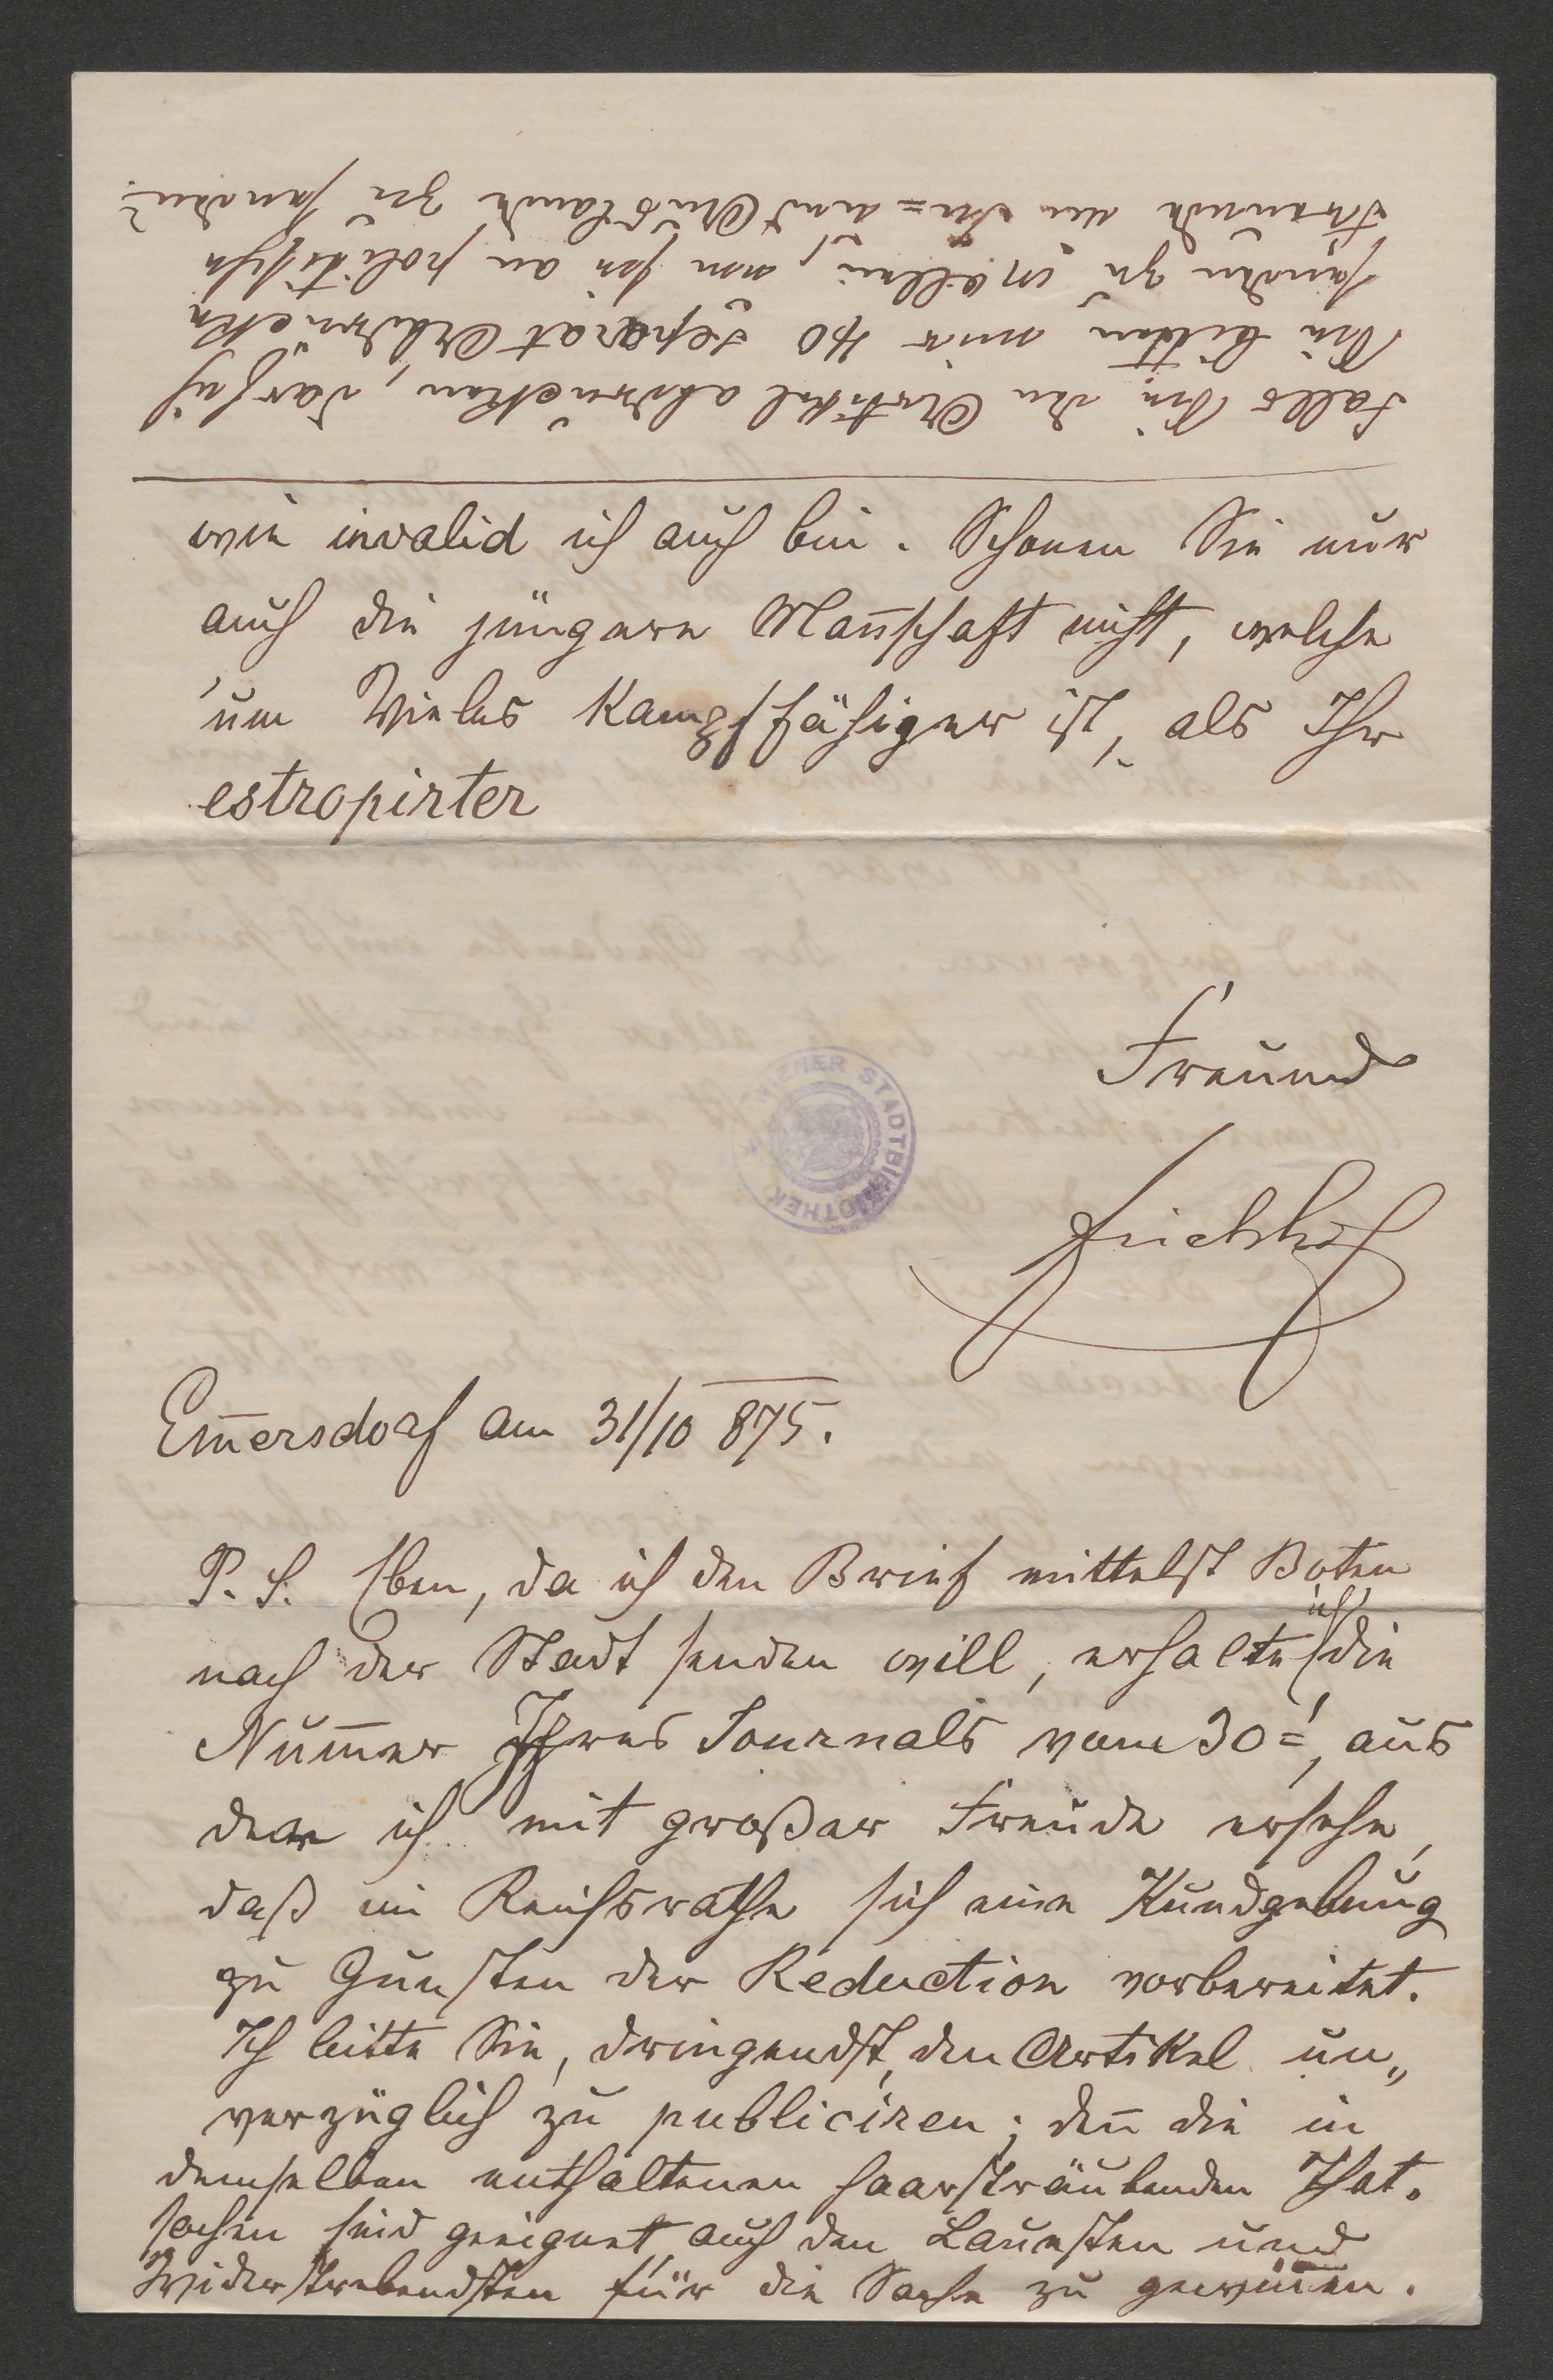 wie invalid ich auch bin. Schonen Sie nur
auch die jüngere Man̄schaft nicht, welche
um Vieles kampffähiger ist, als Ihr
estropirter
Freund
Fischhof
Em̄ersdorf am 31/10 875.
P. S. Eben, da ich den Brief mittelst Boten
nach der Stadt senden will, erhalte ich die
Num̄er Ihres Journals vom 30=, aus
der ich mit großer Freude ersehe,
daß im Reichsrathe sich eine Kundgebung
zu Gunsten der Reduction vorbereitet.
Ich bitte Sie, dringendst, den Artikel un„
verzüglich zu publiciren; den̄ die in
demselben enthaltenen haarsträubenden That.
sachen sind geeignet auch den Lauesten und
Widerstrebendsten für die Sache zu gewin̄en.
Falls Sie den Artikel abdrucken, darf ich
Sie bitten mir 40 Separat Abdrücke
senden zu wollen, um sie an politische
Freunde im In= und Auslande zu senden?
WIENER STADTBIBLIOTHEK